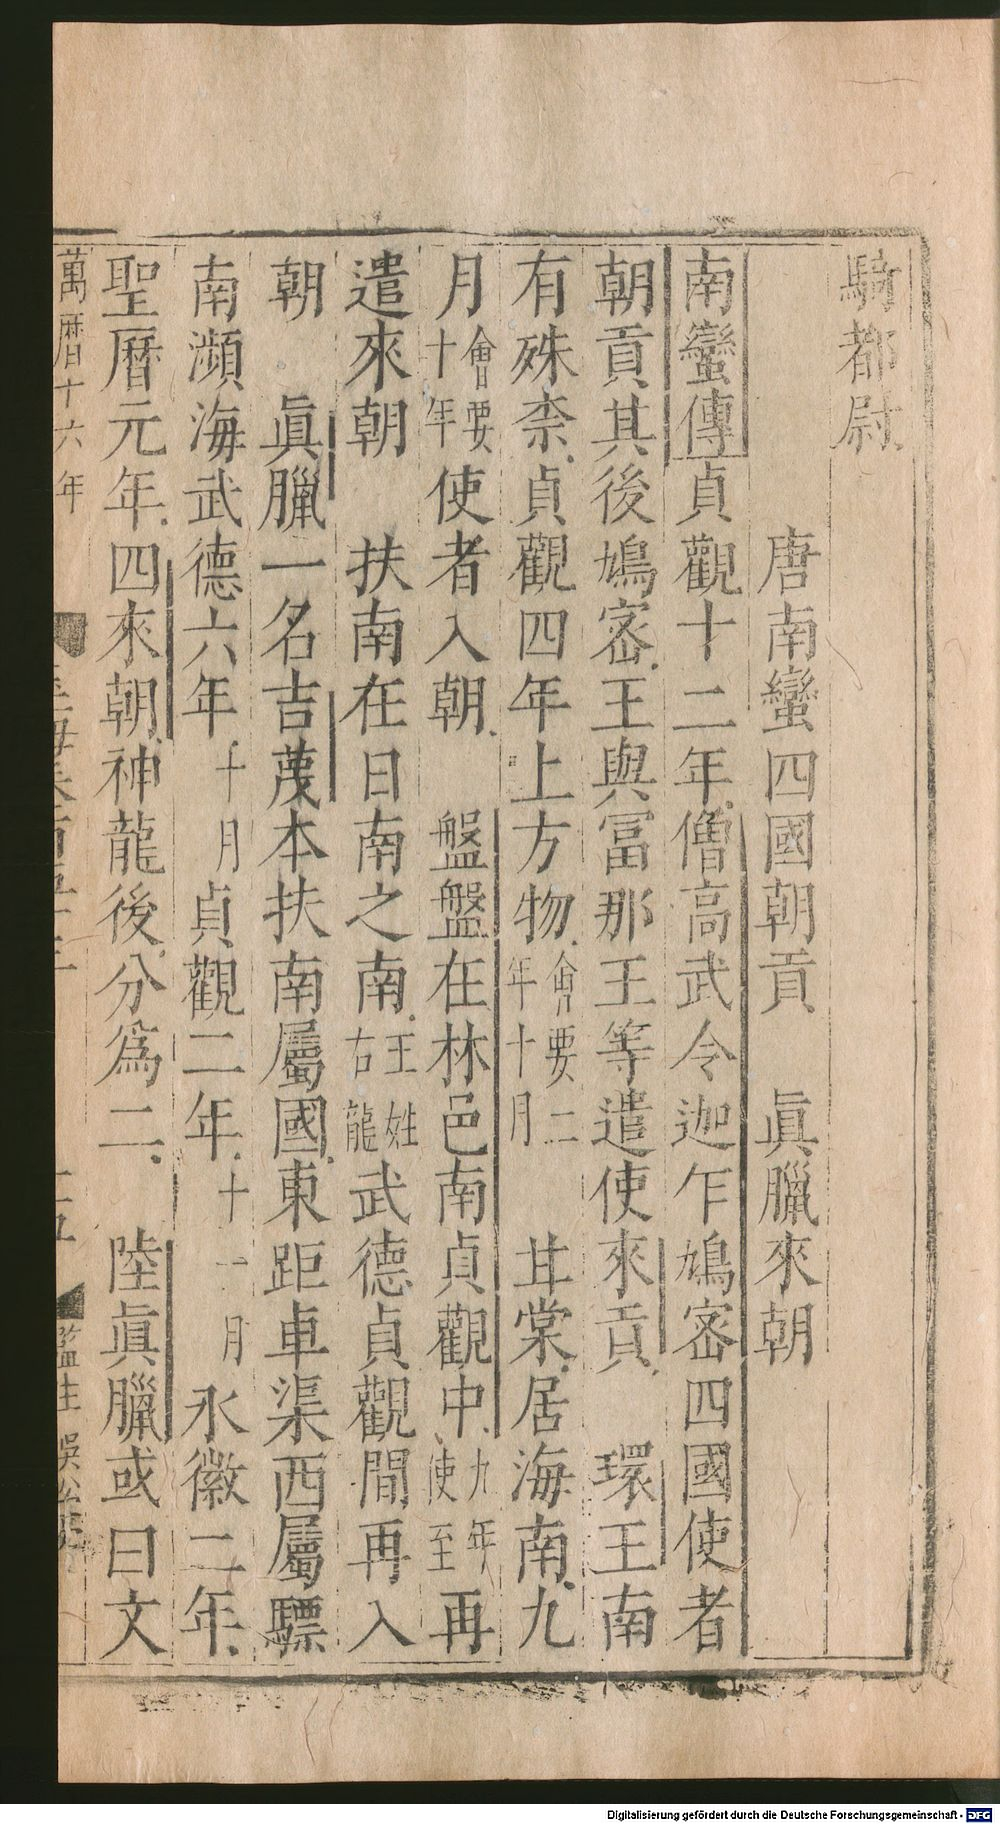 騎都尉
唐南蠻四國朝貢　眞臘來朝
南蠻傳貞觀十二年僧高武令迦乍鳩密四國使者
朝貢其後鳩密王與冨那王等遣使來貢　環王南
有殊柰貞觀四年上方物會要二年十月　甘棠居海南九
月會要十年使者入朝　盤盤在林邑南貞觀中九年使至再
遣來朝　扶南在日南之南王姓古龍武德貞觀間再入
朝　眞臘一名吉蔑本扶南屬國東距車渠西屬驃
南瀕海武德六年十月貞觀二年十一月永徽二年
聖曆元年四來朝神龍後分爲二　陸眞臘或曰文
萬曆十六年
玉海卷百五十三
監生吳
Digitalisierung gefördert durch die Deutsche Forschungsgemeinschaft - DFG